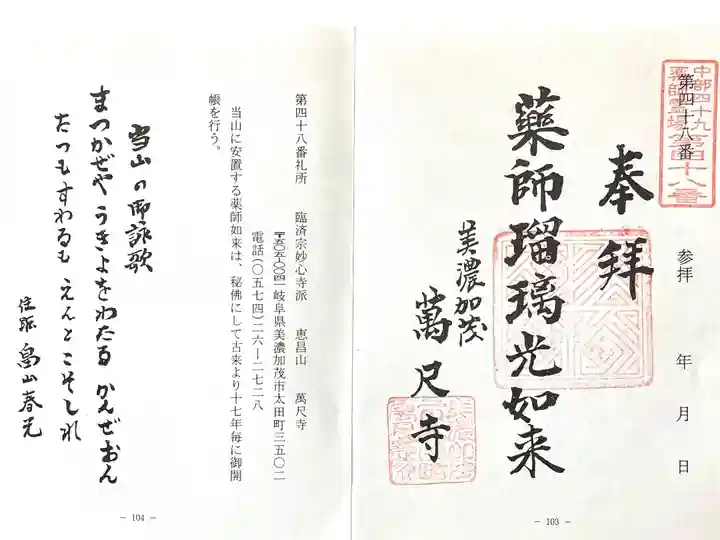 中部四十九
薬師霊場第四十八番
第四十八番
参拝 年 月 日
奉拝
薬師瑠璃光如来
美濃加茂
萬尺寺
− 103 −
第四十八番礼所 臨済宗妙心寺派 恵昌山 萬尺寺
〒五〇五−〇〇四一岐阜県美濃加茂市太田町三五〇二
電話(〇五七四)二六−二七二八
当山に安置する薬師如来は、秘佛にして古来より十七年毎に御開
帳を行う。
当山の御詠歌
まつかぜや うきよをわたる かんぜおん
たつもすわるも えんとこそしれ
住職 畠山春光
− 104 −